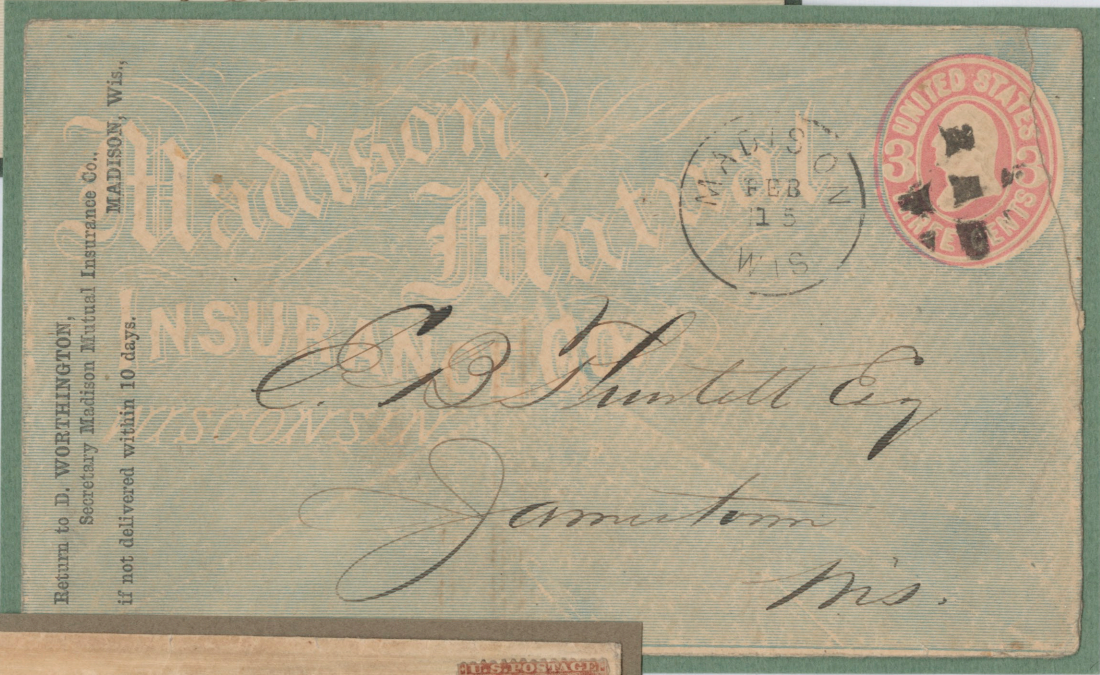 Return to D. WORTHINGTON,
Secretary Madison Mutual Insurance Co.,
MADISON, Wis.,
if not delivered within 10 days.
Madison
Mutual
INSURANCE CO.
WISCONSIN
MADISON
FEB
15
WIS
UNITED STATES
3 3
THREE CENTS
C. B. Esq
Jamestown
Wis.
U.S. POSTAGE.